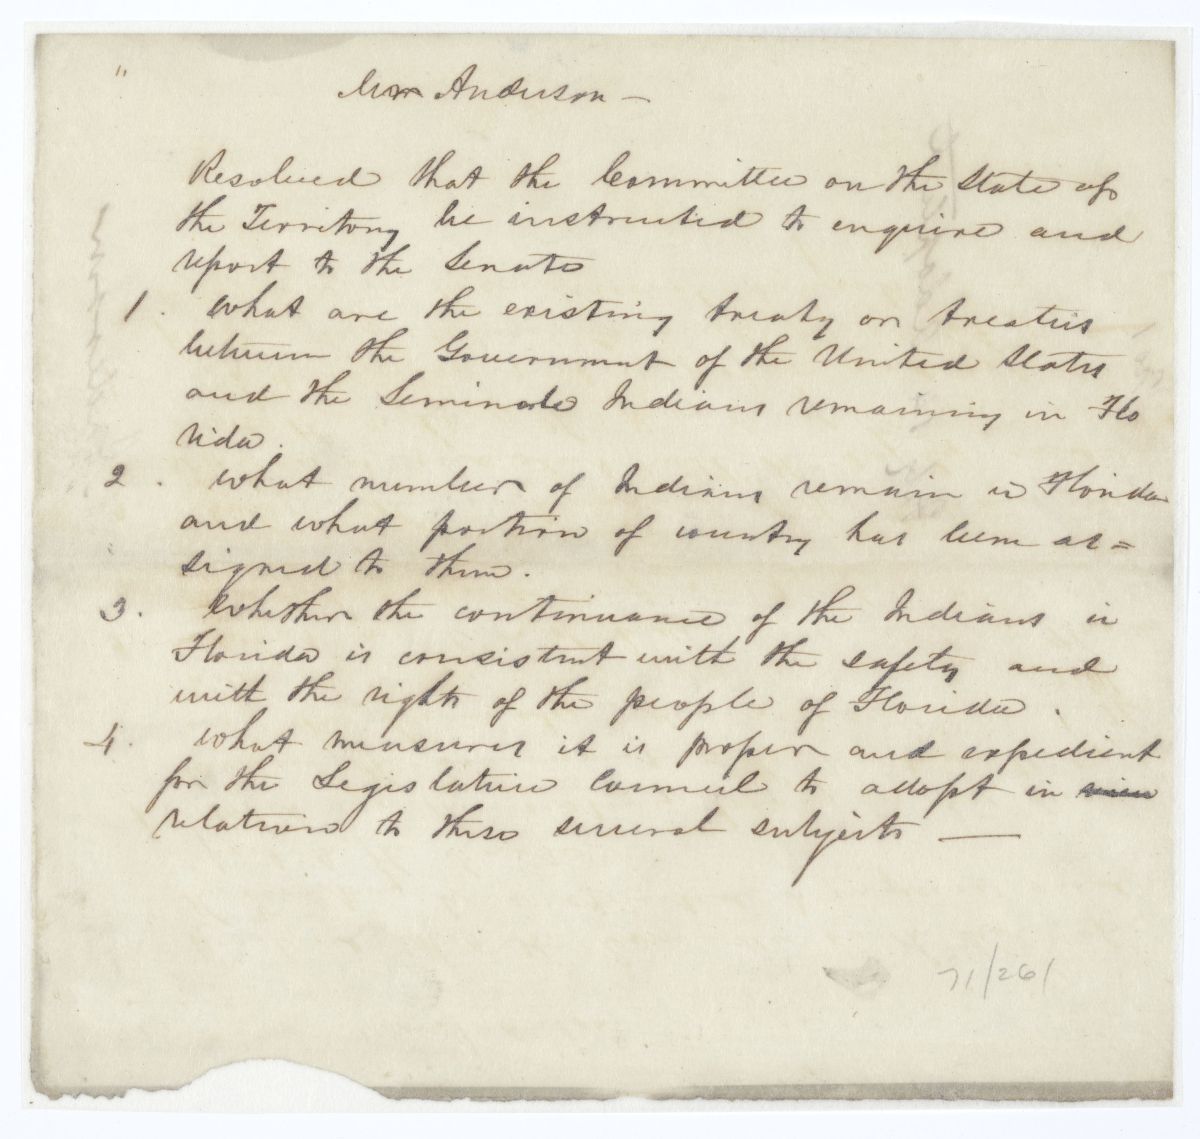 Mr Anderson —
Resolved that the Committee on the State of
the Territory be instructed to enquire and
report to the Senate
1. What are the existing treaty or treaties
between the Government of the United States
and the Seminole Indians remaining in Flo
rida.
2. What number of Indians remain in Florida
and what portion of country has been as=
signed to them.
3. Whether the continuance of the Indians in
Florida is consistent with the safety and
with the rights of the people of Florida.
4. What measures it is proper and expedient
for the Legislative Council to adopt in
relation to these several subjects —
71/261